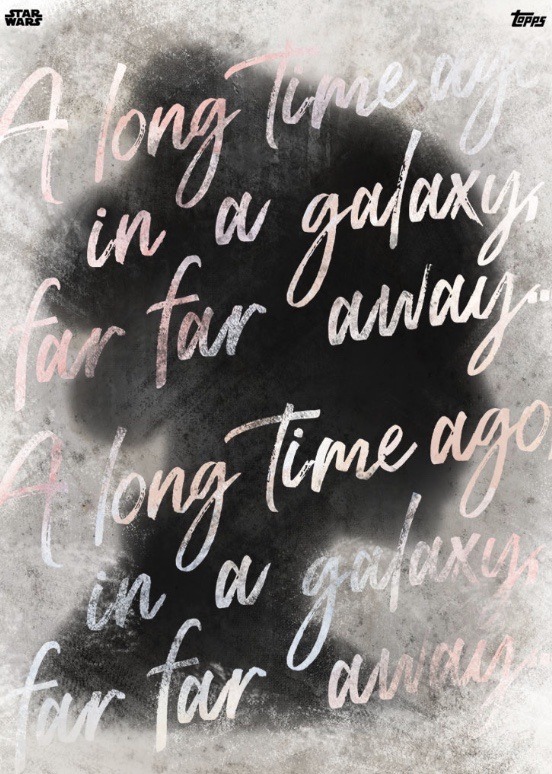 STAR WARS
Topps
A long time ago
in a galaxy,
far far away..
A long time ago,
in a galaxy,
far far away..